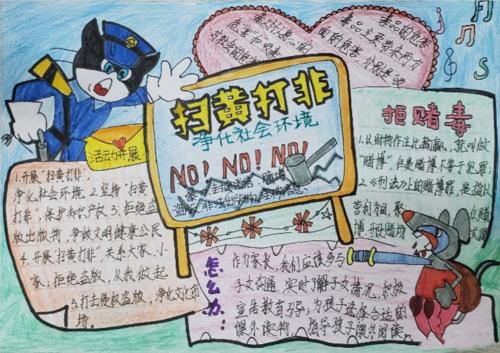 扫黄打非
净化社会环境
NO! NO! NO!
活动开展:
1.开展"扫黄打非"
净化社会环境.2.坚持"扫黄
打非",保护知识产权3.拒绝盗
版出版物,争做文明健康公民
4.开展"扫黄打非"关系大家、小
家:拒绝盗版,从我做起
5.打击侵权盗版,净化文化市
场.
拒赌毒
1.以财物作注比输赢,竟叫做
"赌博",但是赌博不等于犯罪,
2.《刑法》上的赌博罪,是指以
营利目的,聚
博、开设赌场
怎么办:
作为家长,我们应该多与
子女沟通,实时了解子女情况,积极
宣告教育引导,为孩子选择合适的
课外读物,指导孩子课外阅读.